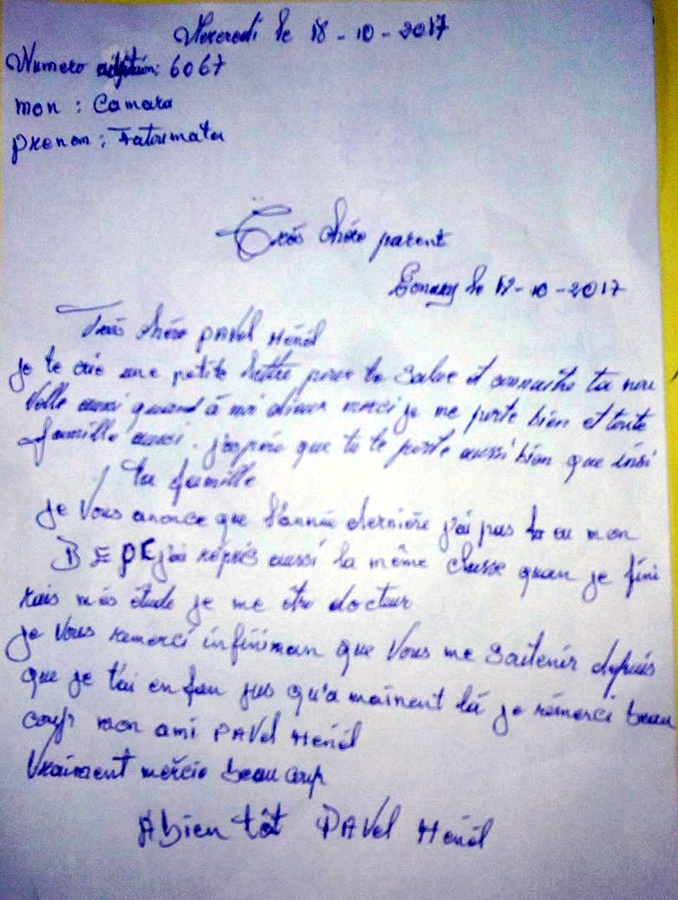 Mercredi le 18-10-2017
Numero adoption: 6067
mon : Camara
prenom : Fatoumata
Très chère parent
Conakry le 18-10-2017
Très chère PAVel Hénél
Je te crie une petite lettre pour te Salue et connaitre ta nou
Velle aussi quand à moi dieux merci je me porte bien et toute
famille aussi. j'espère que tu te porte aussi bien que insi
ta famille
Je Vous anonce que l'année dernière j'ai pas eu mon
BEPC j'ai répris aussi la même Classe quan je fini
rais més étude je me être docteur
je Vous remerci infiniman que Vous me Soutenir depuis
que je t'ai enfan jus qu'a mainent là je rémerci beau
coup mon ami PAVel Hénél
Vraiment mércie beau coup
A bien tôt PAVel Hénél